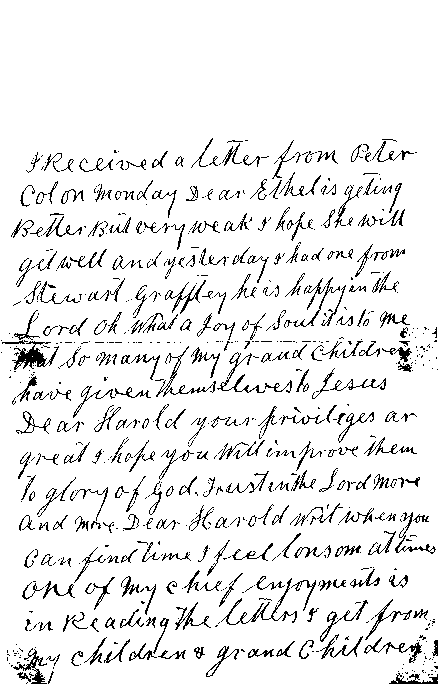 I Received a letter from Peter
Colon Monday Dear Ethel is geting
Better But very weak I hope She will
get well and yesterday I had one from
Stewart Grafftey he is happy in the
Lord Oh What a Joy of Soul it is to me
that So many of My grand Children
have given themselves to Jesus
Dear Harold your priviliges ar
great I hope you Will improve them
to glory of God. Trust in the Lord more
and more. Dear Harold writ when you
can find time I feel lonsom at times
One of My chief enjoyments is
in Reading the letters I get from
My children & grand Children